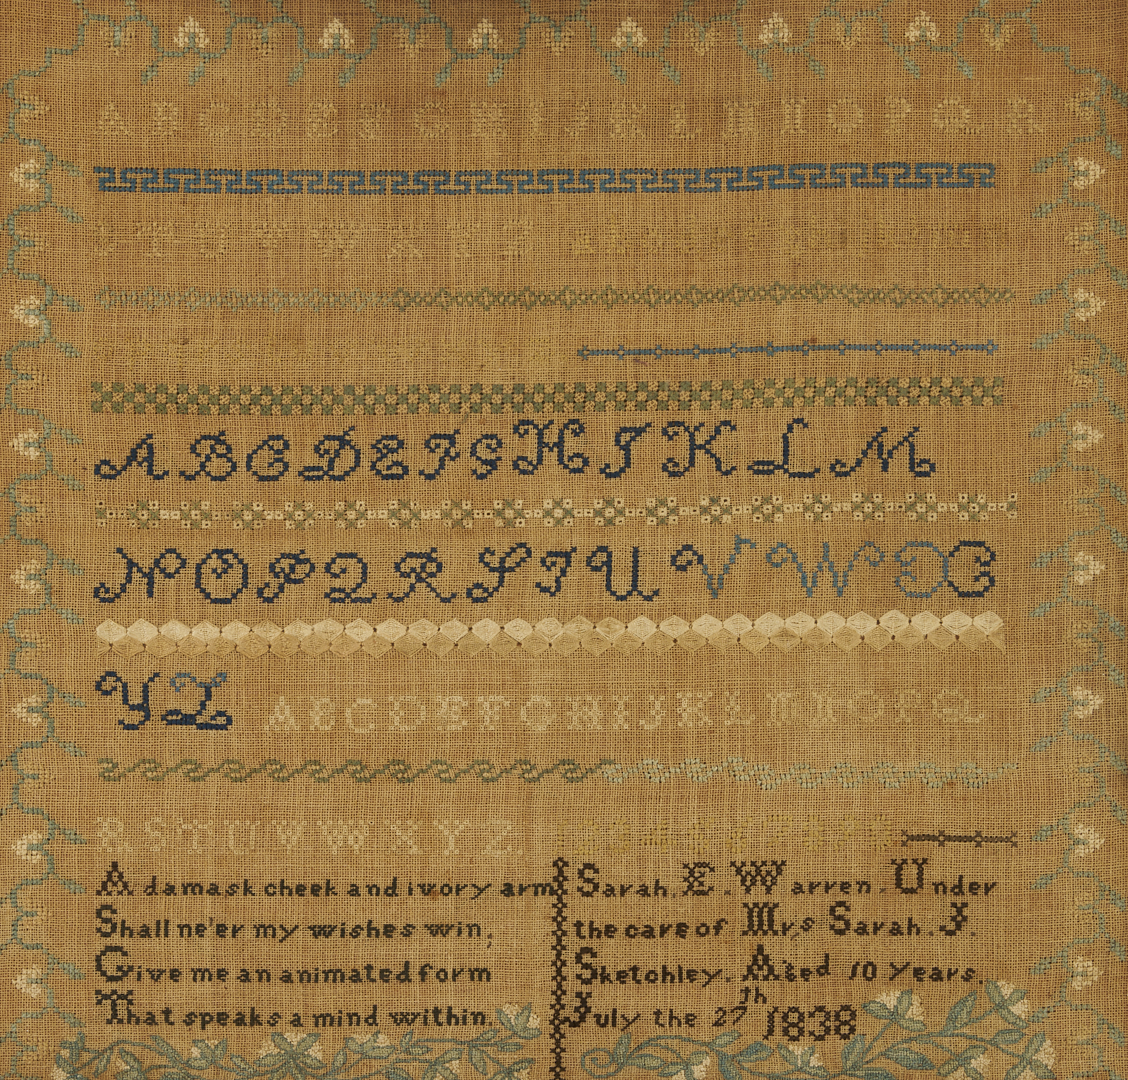 A B C D E F G H I J K L M N O P Q R
S T U V W X Y Z
A B C D E F G H I K L M
N O P Q R S T U V W X
Y Z A B C D E F G H I J K L M N O P Q
R S T U V W X Y Z
A damask cheek and ivory arm
Shall ne'er my wishes win,
Give me an animated form
That speaks a mind within.
Sarah. E. Warren. Under
the care of Mrs Sarah. J.
Sketchley. Aged 10 years.
July the 27th 1838